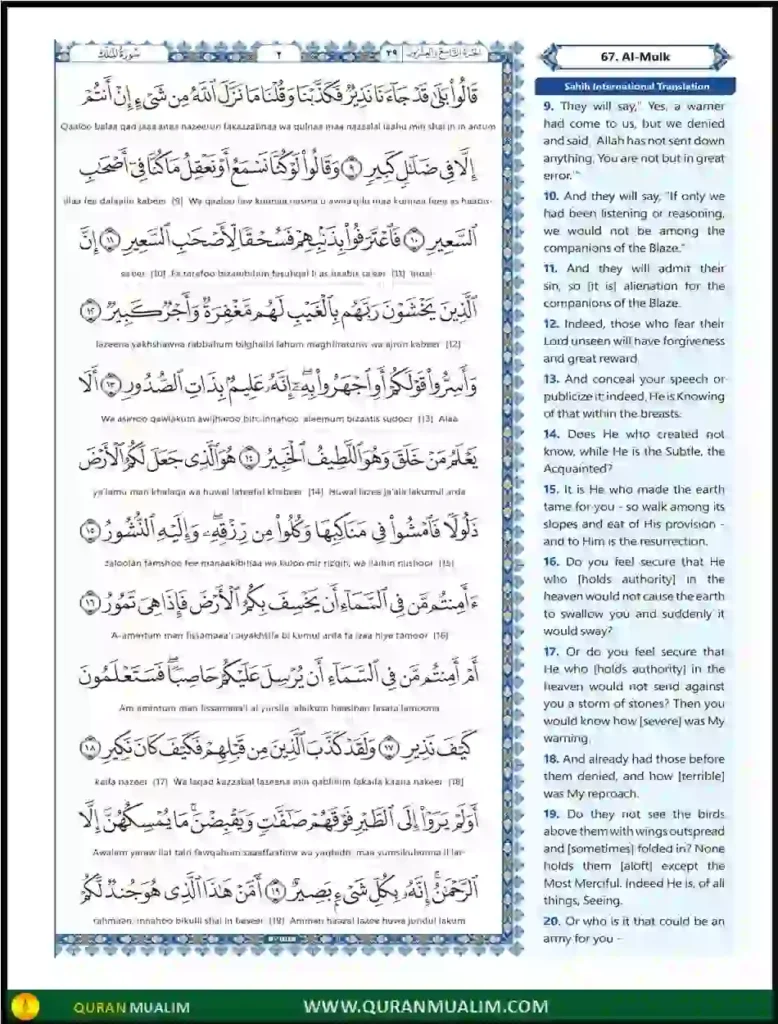 سُورَةُ المُلك
٢
٢٩
الجُزءُ التَّاسِعُ وَالعِشرُونَ
قَالُوا۟ بَلَىٰ قَدْ جَآءَنَا نَذِيرٌ فَكَذَّبْنَا وَقُلْنَا مَا نَزَّلَ ٱللَّهُ مِن شَىْءٍ إِنْ أَنتُمْ
Qaaloo balaa qad jaaa'anaa nazeerun fakazzabnaa wa qulnaa maa nazzalal laahu min shai in in antum
إِلَّا فِى ضَلَـٰلٍ كَبِيرٍ ٩ وَقَالُوا۟ لَوْ كُنَّا نَسْمَعُ أَوْ نَعْقِلُ مَا كُنَّا فِىٓ أَصْحَـٰبِ
illaa fee dalaalin kabeer (9) Wa qaaloo law kunnaa nasma'u awna'qilu maa kunnaa feee as haabis-
ٱلسَّعِيرِ ١٠ فَٱعْتَرَفُوا۟ بِذَنۢبِهِمْ فَسُحْقًا لِّأَصْحَـٰبِ ٱلسَّعِيرِ ١١ إِنَّ
sa'eer (10) Fa'tarafoo bizambihim fasuhqal li as haabis sa'eer (11) Innal-
ٱلَّذِينَ يَخْشَوْنَ رَبَّهُم بِٱلْغَيْبِ لَهُم مَّغْفِرَةٌ وَأَجْرٌ كَبِيرٌ ١٢
lazeena yakhshawna rabbahum bilghaibi lahum maghfiratunw wa ajrun kabeer (12)
وَأَسِرُّوا۟ قَوْلَكُمْ أَوِ ٱجْهَرُوا۟ بِهِۦٓ إِنَّهُۥ عَلِيمٌۢ بِذَاتِ ٱلصُّدُورِ ١٣ أَلَا
Wa asirroo qawlakum awijharoo bih; innahoo 'aleemum bizaatis sudoor (13) Alaa
يَعْلَمُ مَنْ خَلَقَ وَهُوَ ٱللَّطِيفُ ٱلْخَبِيرُ ١٤ هُوَ ٱلَّذِى جَعَلَ لَكُمُ ٱلْأَرْضَ
ya'lamu man khalaqa wa huwal lateeful khabeer (14) Huwal lazee ja'ala lakumul arda
ذَلُولًا فَٱمْشُوا۟ فِى مَنَاكِبِهَا وَكُلُوا۟ مِن رِّزْقِهِۦ وَإِلَيْهِ ٱلنُّشُورُ ١٥
zaloolan famshoo fee manaakibihaa wa kuloo mir rizqih; wa ilaihin nushoor (15)
ءَأَمِنتُم مَّن فِى ٱلسَّمَآءِ أَن يَخْسِفَ بِكُمُ ٱلْأَرْضَ فَإِذَا هِىَ تَمُورُ ١٦
A-amintum man fissamaaa'i aiyakhsifa bi kumul arda fa izaa hiya tamoor (16)
أَمْ أَمِنتُم مَّن فِى ٱلسَّمَآءِ أَن يُرْسِلَ عَلَيْكُمْ حَاصِبًا فَسَتَعْلَمُونَ
Am amintum man fissamaaa'i ai yursila 'alaikum haasiban fasata'lamoona
كَيْفَ نَذِيرِ ١٧ وَلَقَدْ كَذَّبَ ٱلَّذِينَ مِن قَبْلِهِمْ فَكَيْفَ كَانَ نَكِيرِ ١٨
kaifa nazeer (17) Wa laqad kazzabal lazeena min qablihim fakaifa kaana nakeer (18)
أَوَلَمْ يَرَوْا۟ إِلَى ٱلطَّيْرِ فَوْقَهُمْ صَـٰٓفَّـٰتٍ وَيَقْبِضْنَ مَا يُمْسِكُهُنَّ إِلَّا
Awalam yaraw ilat tairi fawqahum saaaffaatinw wa yaqbidn; maa yumsikuhunna il lar-
ٱلرَّحْمَـٰنُ إِنَّهُۥ بِكُلِّ شَىْءٍۭ بَصِيرٌ ١٩ أَمَّنْ هَـٰذَا ٱلَّذِى هُوَ جُندٌ لَّكُمْ
rahmaan; innahoo bikulli shai im baseer (19) Amman haazal lazee huwa jundul lakum
67. Al-Mulk
Sahih International Translation
9. They will say," Yes, a warner
had come to us, but we denied
and said, 'Allah has not sent down
anything. You are not but in great
error.'"
10. And they will say, "If only we
had been listening or reasoning,
we would not be among the
companions of the Blaze."
11. And they will admit their
sin, so [it is] alienation for the
companions of the Blaze.
12. Indeed, those who fear their
Lord unseen will have forgiveness
and great reward.
13. And conceal your speech or
publicize it; indeed, He is Knowing
of that within the breasts.
14. Does He who created not
know, while He is the Subtle, the
Acquainted?
15. It is He who made the earth
tame for you - so walk among its
slopes and eat of His provision -
and to Him is the resurrection.
16. Do you feel secure that He
who [holds authority] in the
heaven would not cause the earth
to swallow you and suddenly it
would sway?
17. Or do you feel secure that
He who [holds authority] in the
heaven would not send against
you a storm of stones? Then you
would know how [severe] was My
warning.
18. And already had those before
them denied, and how [terrible]
was My reproach.
19. Do they not see the birds
above them with wings outspread
and [sometimes] folded in? None
holds them [aloft] except the
Most Merciful. Indeed He is, of all
things, Seeing.
20. Or who is it that could be an
army for you -
QURAN MUALIM
WWW.QURANMUALIM.COM